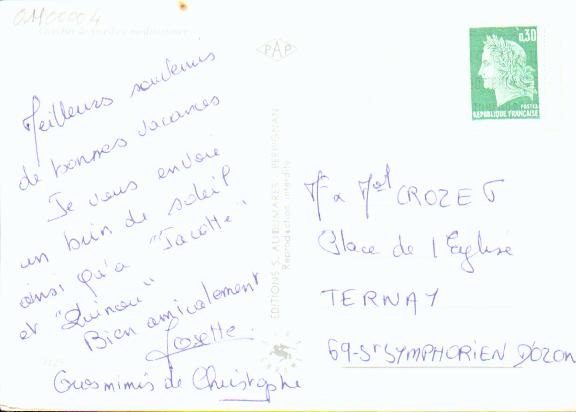 OM00004
Coucher de soleil en méditerranée
Meilleurs souvenirs
de bonnes vacances
Je vous envoie
un brin de soleil
ainsi qu'a "Jacotte"
et "Quinou"
Bien amicalement
Josette.
Grosmimis de Christophe
PAP
EDITIONS S. AUDUMARES PERPIGNAN
Reproduction interdite
0,30
POSTES
REPUBLIQUE FRANÇAISE
Mr & Mme CROZET
Place de l'Eglise
TERNAY
69-St SYMPHORIEN D'OZON